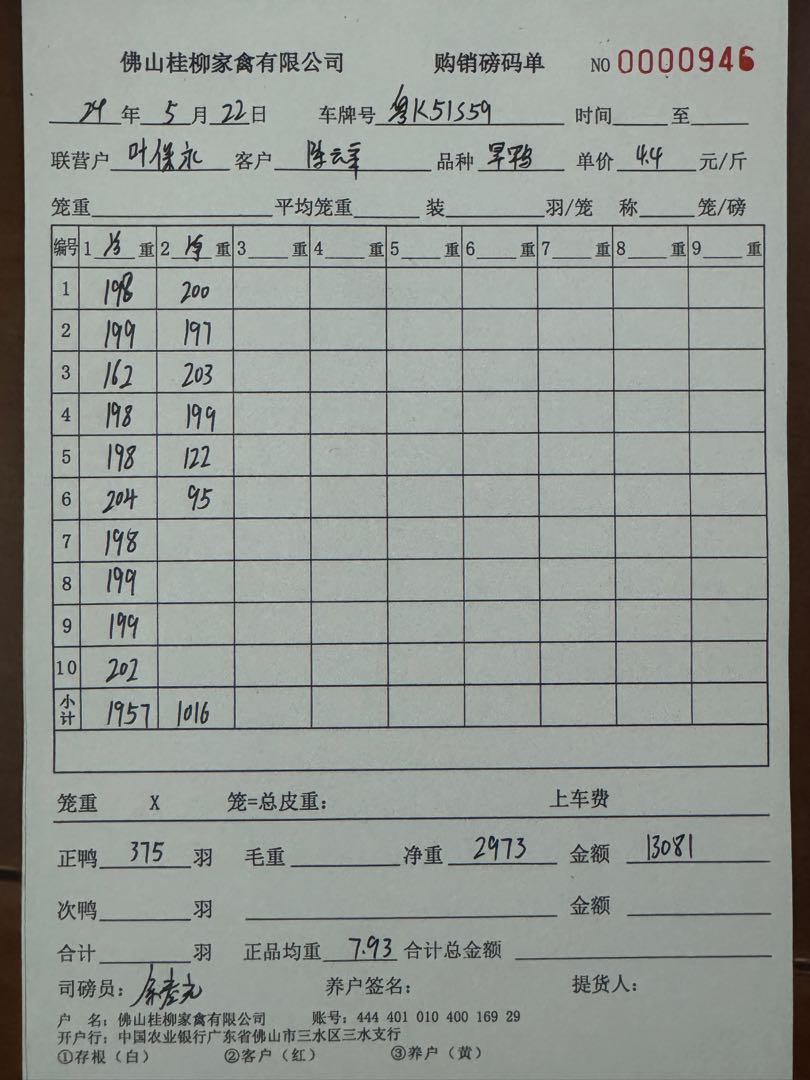 佛山桂柳家禽有限公司 购销磅码单 NO 0000946
24 年 5 月 22 日 车牌号 粤K51S59 时间 至
联营户 叶保永 客户 陈云峯 品种 旱鸭 单价 4.4 元/斤
笼重 平均笼重 装 羽/笼 称 笼/磅
编号 1 净 重 2 净 重 3 重 4 重 5 重 6 重 7 重 8 重 9 重
1 198 200
2 199 197
3 162 203
4 198 199
5 198 122
6 204 95
7 198
8 199
9 199
10 202
小计 1957 1016
笼重 X 笼=总皮重: 上车费
正鸭 375 羽 毛重 净重 2973 金额 13081
次鸭 羽 金额
合计 羽 正品均重 7.93 合计总金额
司磅员: 养户签名: 提货人:
户 名: 佛山桂柳家禽有限公司 账号: 444 401 010 400 169 29
开户行: 中国农业银行广东省佛山市三水区三水支行
①存根(白) ②客户(红) ③养户(黄)